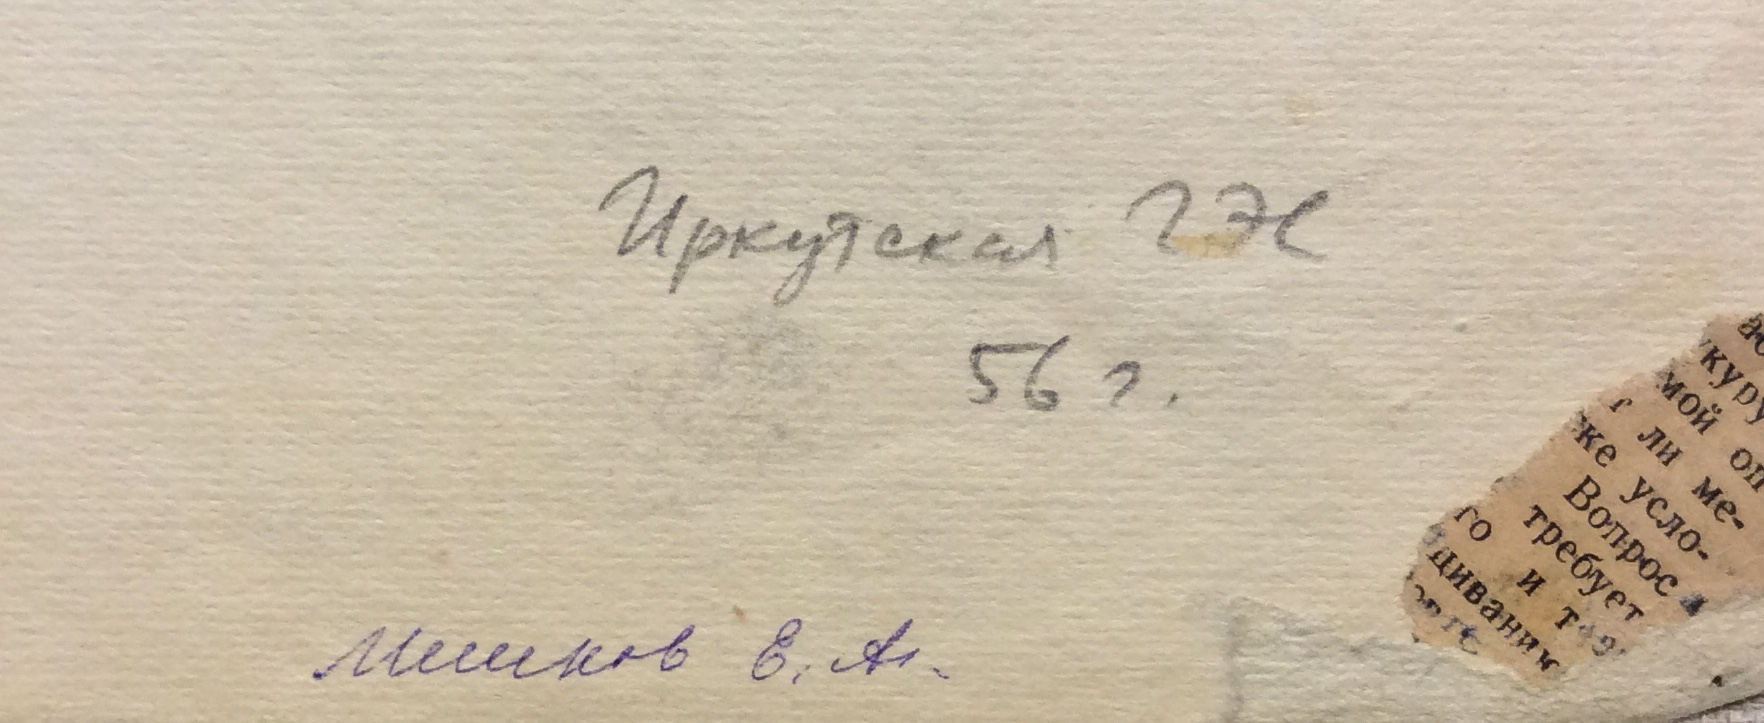 Иркутская ГЭС
56 г.
Мешков Е. А.
куру
мой оп
г ли ме-
же усло-
Вопрос
требует
го и т
щивани